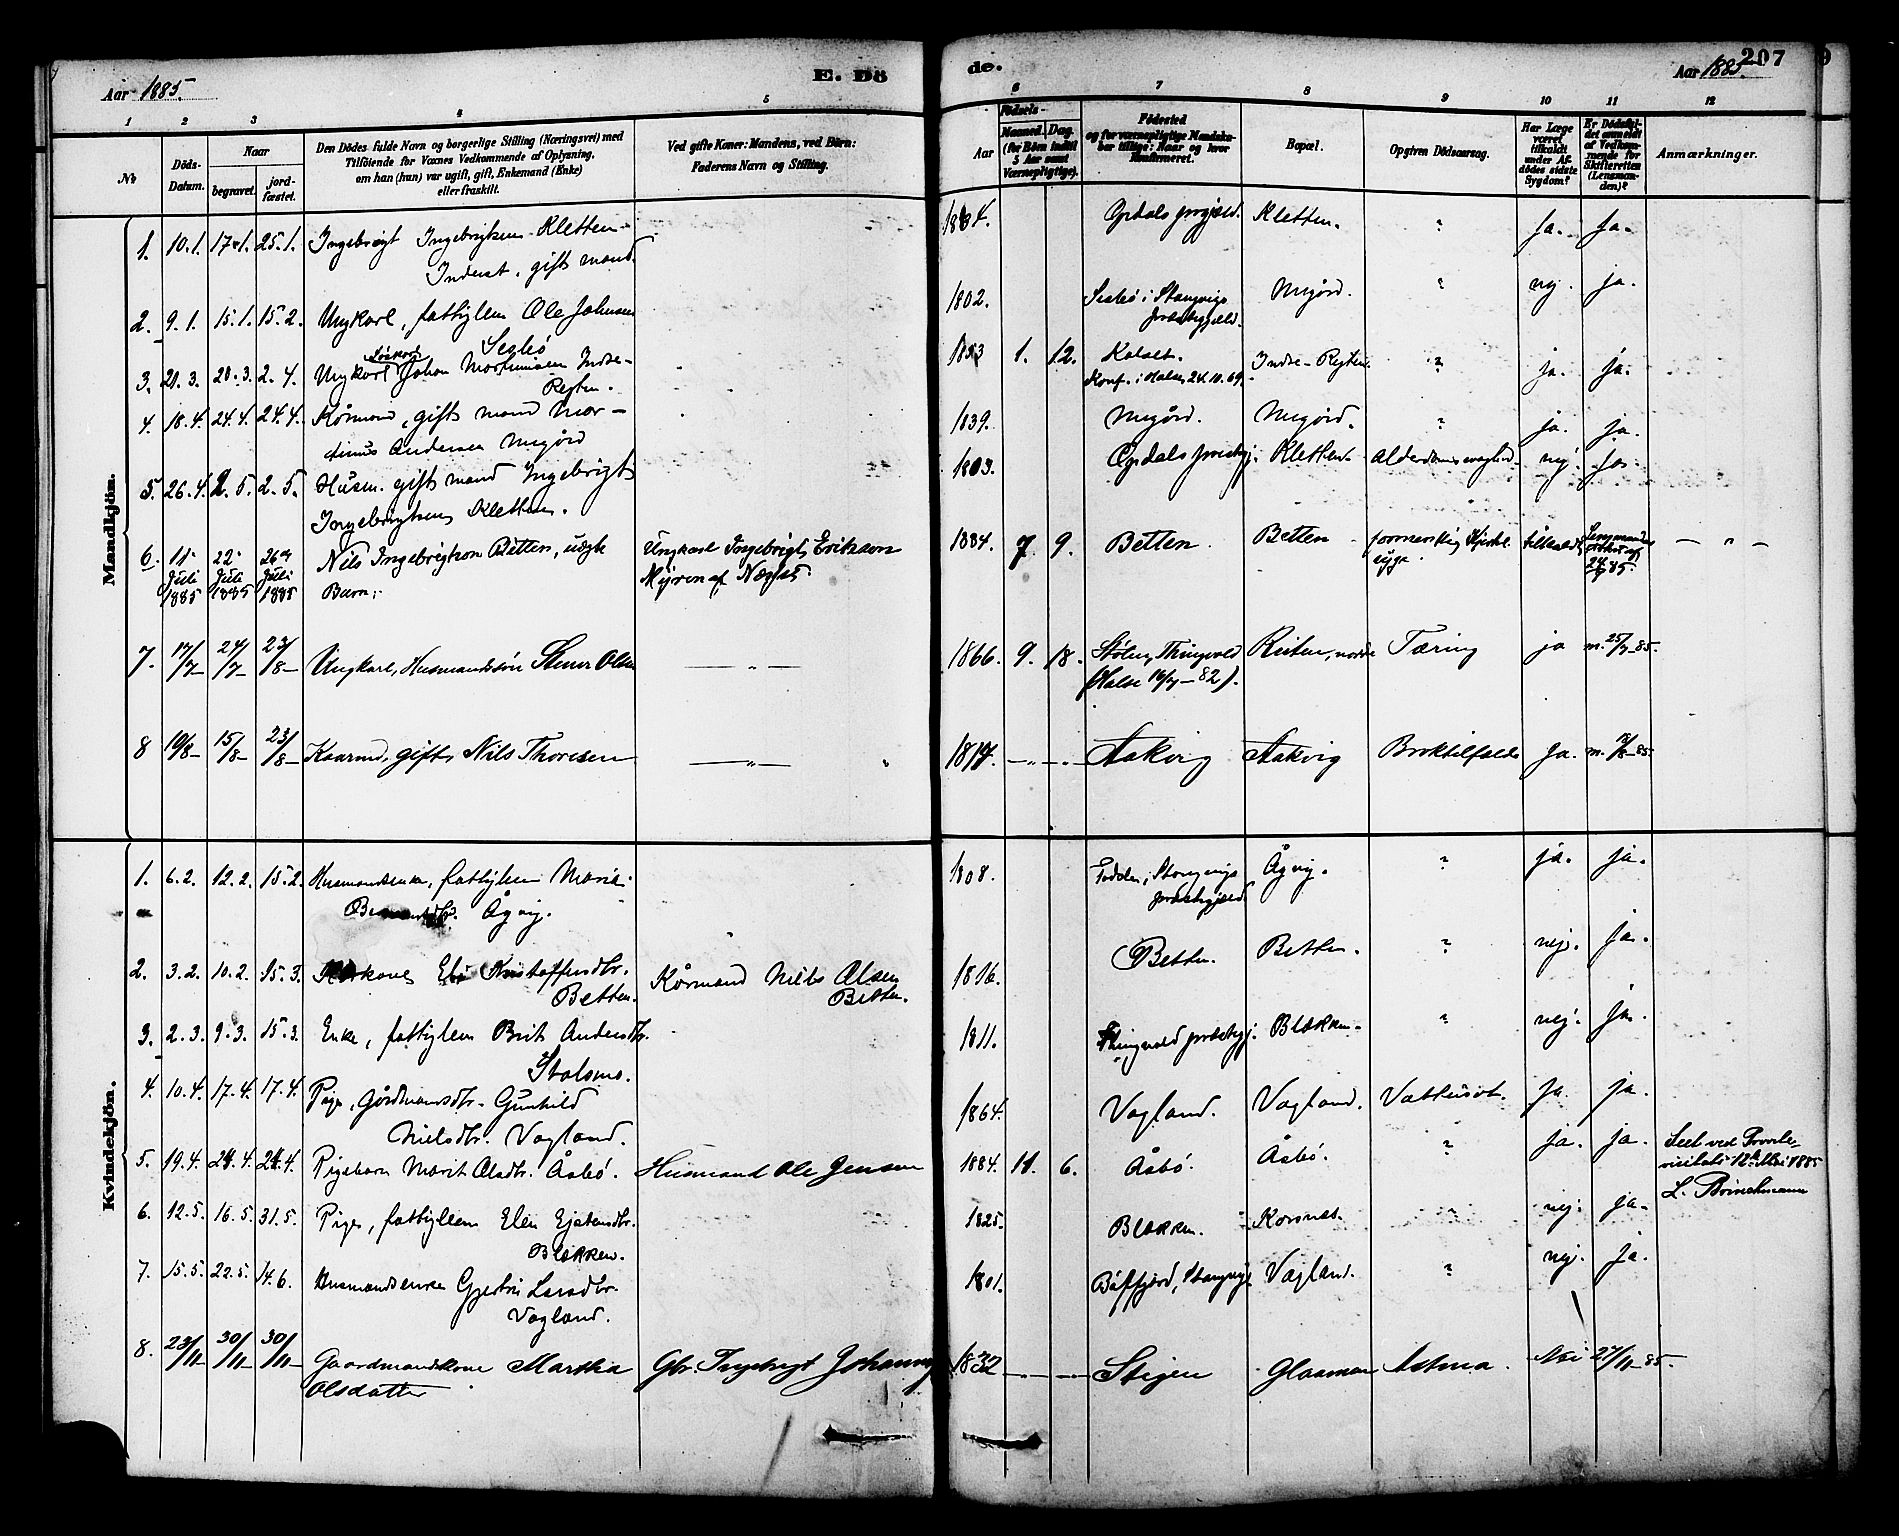 Aar 1885.
E. Dö
de.
Aar 1885.
207
1 2 3 4 5 6 7 8 9 10 11 12
No
Döds-
Datum.
Naar
begravet.
jord-
fæstet.
Den Dödes fulde Navn og borgerlige Stilling (Næringsvei) med
Tilföiende for Voxnes Vedkommende af Oplysning,
om han (hun) var ugift, gift, Enkemand (Enke)
eller fraskilt.
Ved gifte Koner: Mandens, ved Börn:
Faderens Navn og Stilling.
Aar
Födsels-
Maaned. Dag.
(for Börn indtil
5 Aar samt
Værnepligtige).
Födested
og for værnepligtige Mandska-
ber tillige: Naar og hvor
konfirmeret.
Bopæl.
Opgiven Dödsaarsag.
Har Læge
været
tilkaldt
under Af-
dödes sidste
Sygdom?
Er Dödsfal-
det anmeldt
af Vedkom-
mende for
Skifteretten
(Lensman-
den)?
Anmærkninger.
Mandkjön.
1. 10.1. 17.1. 25.1. Ingebrigt Ingebrigtsen Kletten
Inderst, gift mand. Opdals prgjeld. Kletten. " Ja. Ja.
2. 9.1. 15.1. 15.2. Ungkarl, fattiglem Ole Johnsen
Sesbö 1802. Sesbö i Stangvigs
præstegjæld. Megörd. " nej. ja.
3. 21.3. 28.3. 2.4. Ungkarl Johan Mortinusen Indre-
Rejten. 1853 1. 12. Kalset.
Konf. i Halse 24.10.69. Indre-Rejten " ja. ja.
4. 18.4. 24.4. 24.4. Kårmand, gift mand Mor-
tinus Andersen Megörd 1839. Megörd. Megörd. " ja. ja.
5. 26.4. 2.5. 2.5. Husm. gift mand Ingebrigt
Ingebrigtsen Kletten. 1803. Opdals præstegj. Kletten. Alderdomssvaghed. nej. ja.
6. 11 Juli 1885 22 Juli 1885 26de Juli 1885 Nils Ingebrigtson Betten, uægte
Barn. Ungkarl Ingebrigt Erikson
Myren af Næsset. 1884. 7. 9. Betten. Betten tilkaldt
85. — " —
7. 17/7 24/7 23/8 Ungkarl, Husmandssön Stener Olsen — " — 1866. 9. 18. Stölen, Thingvold
(Halse 16/7 - 82). Reiten, nordre Tæring ja m. 25/7-85.
8 10/8 15/8 23/8 Kaarmd, gift, Nils Thoresen — " — Aakvig Aakvig Broktilfælde Ja.
Kvindekjön.
1. 6.2. 12.2. 15.2. Husmandsenke, fattiglem Marie
Ågvig. 1808. Todden i Stangvigs
præstegjæld. Ågvig. " ja. ja.
2. 3.2. 10.2. 15.3. Kårkone Eli Kristoffersdtr.
Betten. Kårmand Nils Olsen
Betten. 1816. Betten. Betten. " nej. ja.
3. 2.3. 9.3. 15.3. Enke, fattiglem Brit Andersdtr.
Stolsmo. 1811. Thingvold præstegj. Blekken. " nej. ja.
4. 10.4. 17.4. 17.4. Pige, Gårdmandsdtr. Gunhild
Nielsdtr. Vagland. 1864. Vagland. Vagland. Vattusot. ja. ja.
5. 19.4. 24.4. 24.4. Pigebarn Marit Olsdtr. Åsbö. Husmand Ole Jensen 1884. 11. 6. Åsbö. Åsbö. " ja. ja. Seet ved Provste-
visitats 12te Mai 1885
L. Brinchmann
6. 12.5. 16.5. 31.5. Pige, fattiglem Elen Ejstensdtr.
Blekken. 1825. Blekken. Korsnes. nej. ja.
7. 15.5. 22.5. 14.6. Husmandsenke Gjertrü Larsdtr.
Vagland. 1801. Bæffjord, Stangvig Vagland. " nej. ja.
8. 23/11 30/11 30/11 Gaardmandskone Martha
Olsdatter Gbr. Ingebrigt Johannes 1832 — Stigen Glaamen Astma. Nei 27/11-85.